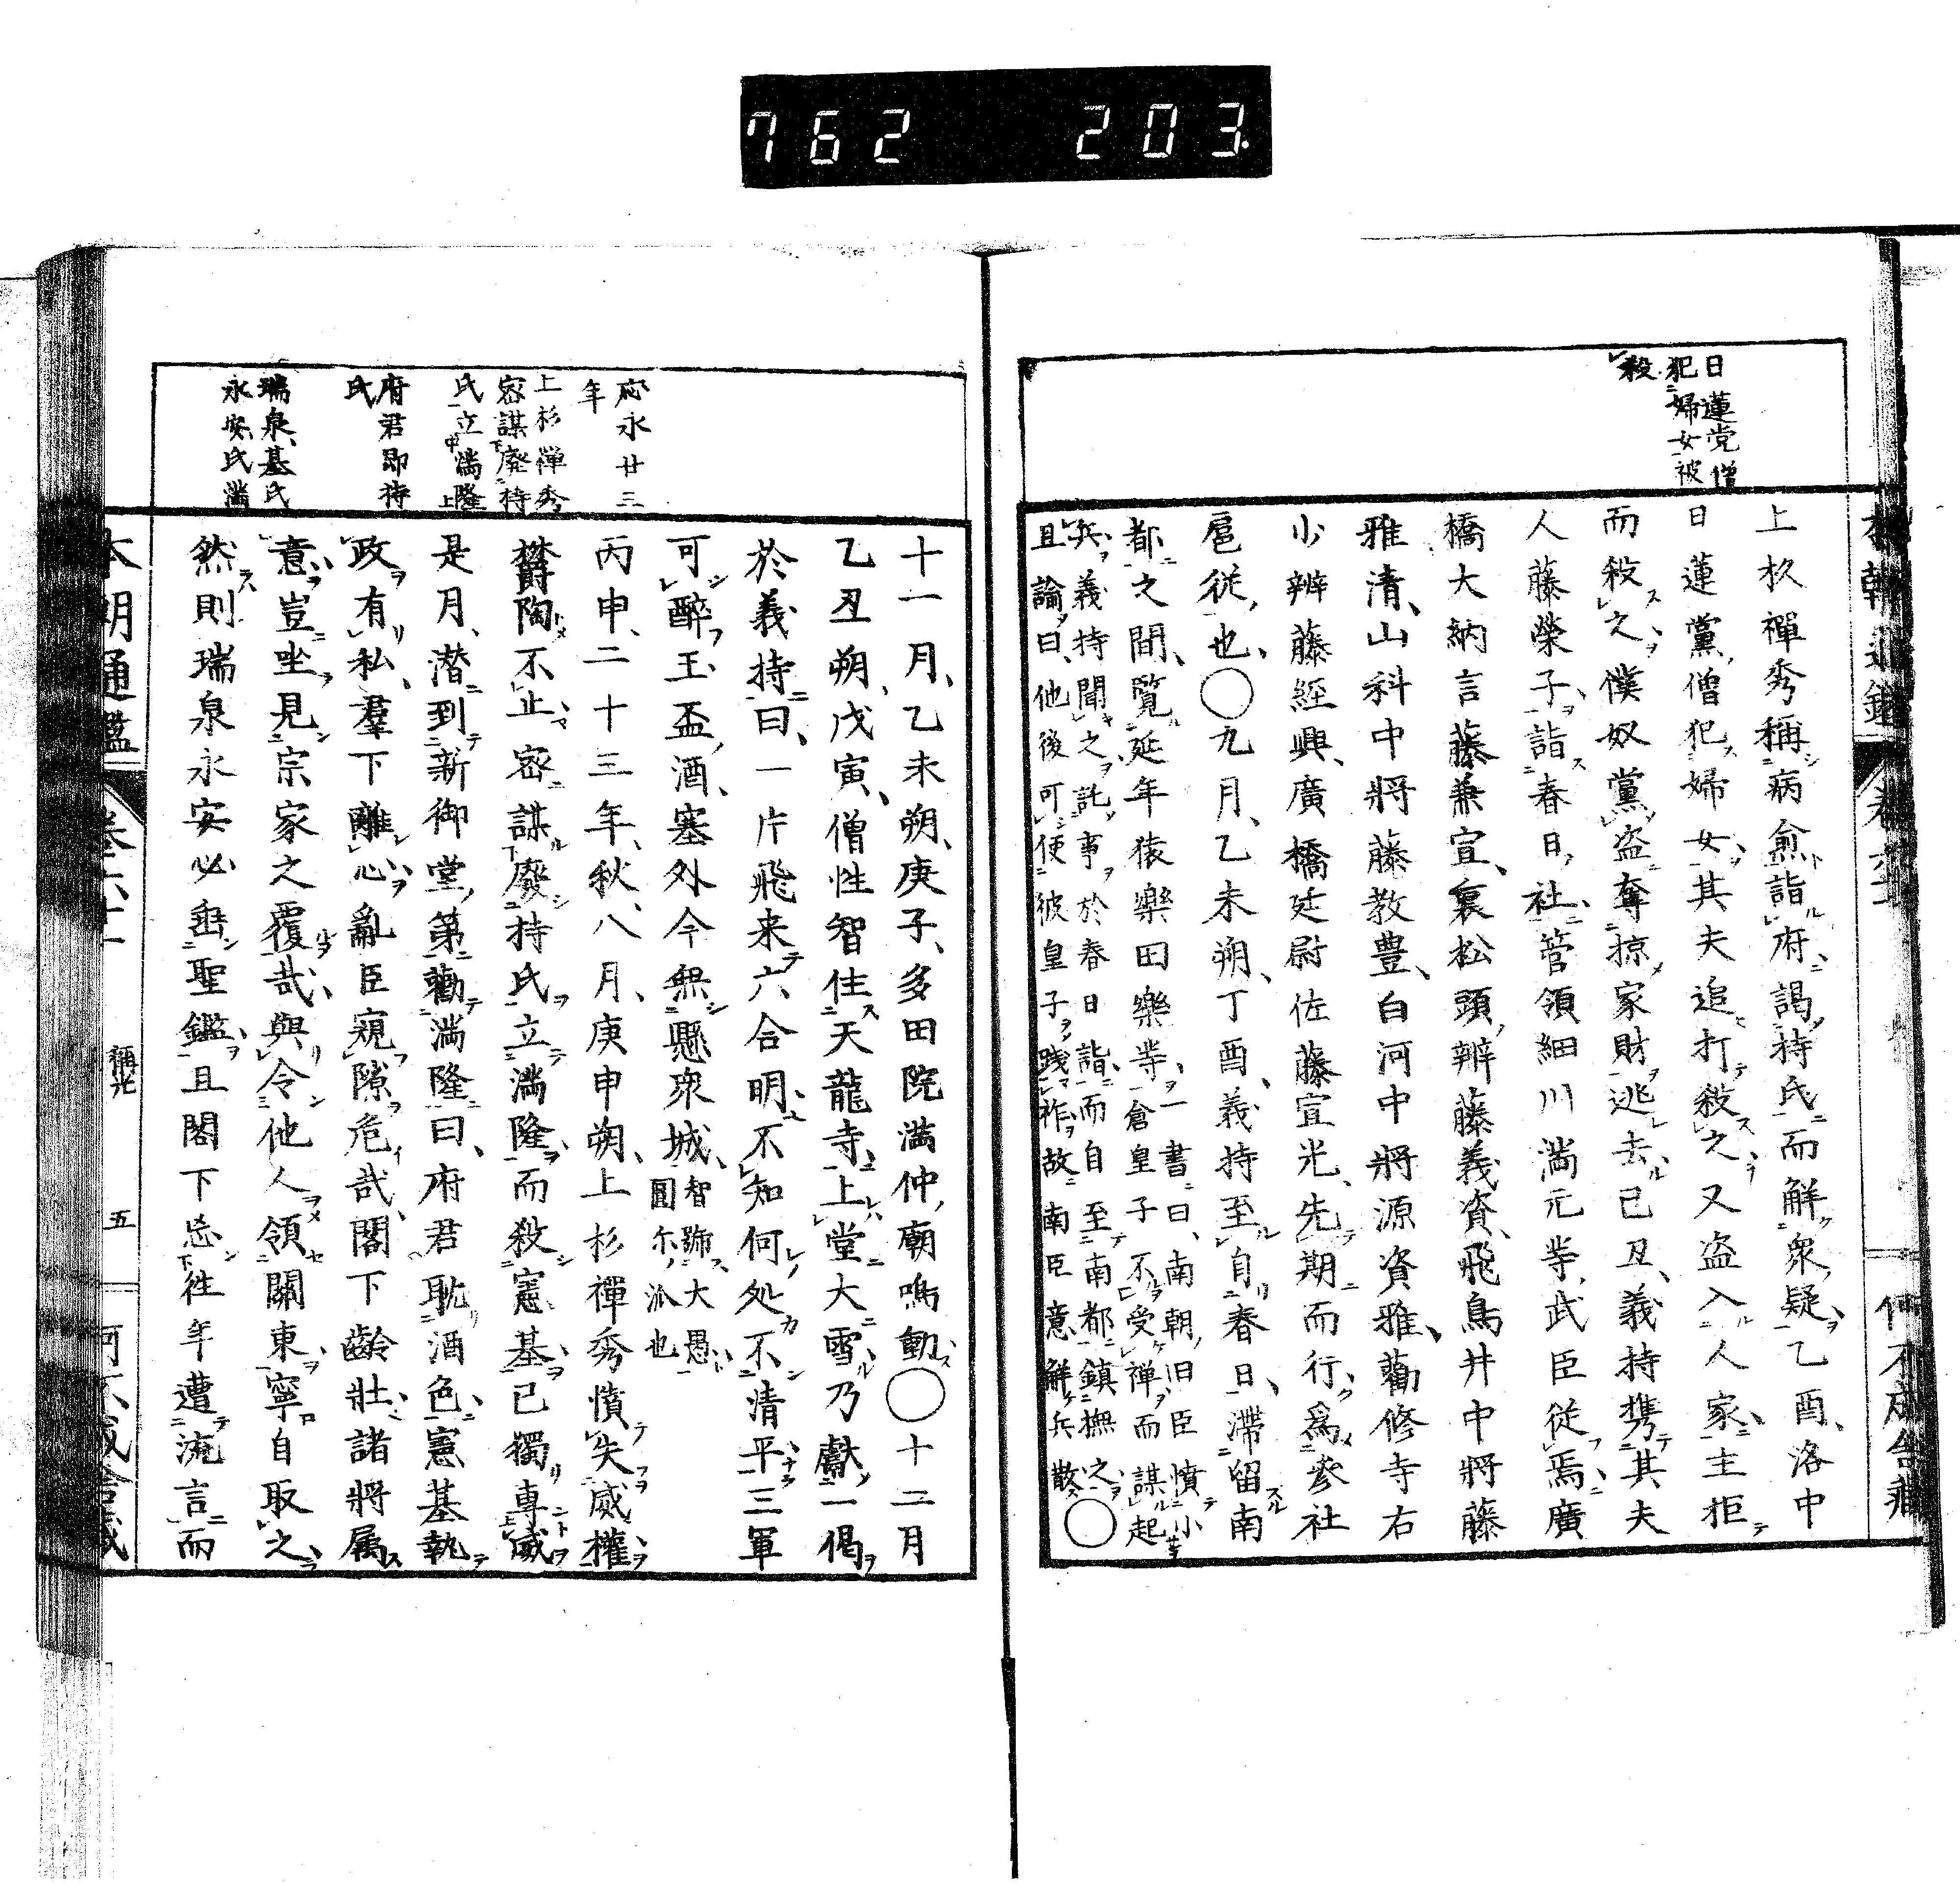 762 203
日蓮党僧
犯婦女被
殺
上杉禪秀稱病愈詣府謁持氏而解衆疑乙酉洛中
日蓮黨僧犯婦女其夫追打殺之又盗入人家主拒
而殺之僕奴黨盗奪掠家財逃去己丑義持携其夫
人藤榮子詣春日社管領細川満元等武臣從焉廣
橋大納言藤兼宣裏松頭辨藤義資飛鳥井中將藤
雅清山科中將藤教豊白河中將源資雅勸修寺右
少辨藤經興廣橋廷尉佐藤宣光先期而行爲參社
扈從也〇九月乙未朔丁酉義持至自春日滞留南
都之間覧延年猿樂田樂等一書曰南朝旧臣憤小倉皇子不受禅而謀起
兵義持聞之託事於春日詣而自至南都鎮撫之
且諭曰他後可使彼皇子踐祚故南臣意解兵散〇
應永廿三
年
上杉禅秀
密謀廢持
氏立満隆
府君即持
氏
瑞泉基氏
永安氏満
十一月乙未朔庚子多田院満仲廟鳴動〇十二月
乙丑朔戊寅僧性智住天龍寺上堂大雪乃獻一偈
於義持曰一片飛来六合明不知何処不清平三軍
可醉玉盃酒塞外今無懸衆城智號大愚圓尓派也
丙申二十三年秋八月庚申朔上杉禪秀憤失威權
欝陶不止密謀廢持氏立満隆而殺憲基已獨專威
是月潜到新御堂第勸満隆曰府君耽酒色憲基執
政有私羣下離心亂臣窺隙危哉閣下齡壯諸將属
意豈坐見宗家之覆哉與令他人領關東寧自取之
然則瑞泉永安必垂聖鑑且閣下忘徃年遭流言而
本朝通鑑 卷六十一 稱光 五